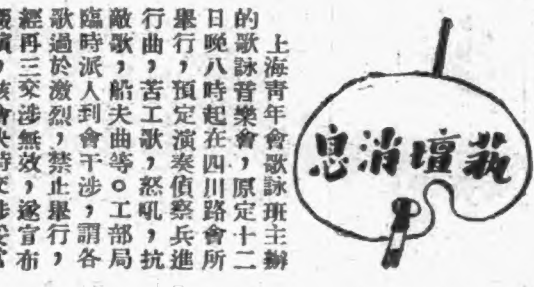 蓺壇消息
上海青年會歌詠班主辦
的歌詠音樂會，原定十二
日晚八時起在四川路會所
舉行，預定演奏偵察兵進
行曲，苦工歌，怒吼，抗
敵歌，船夫曲等。工部局
臨時派人到會干涉，謂各
歌過於激烈，禁止舉行，
經再三交涉無效，遂宣布